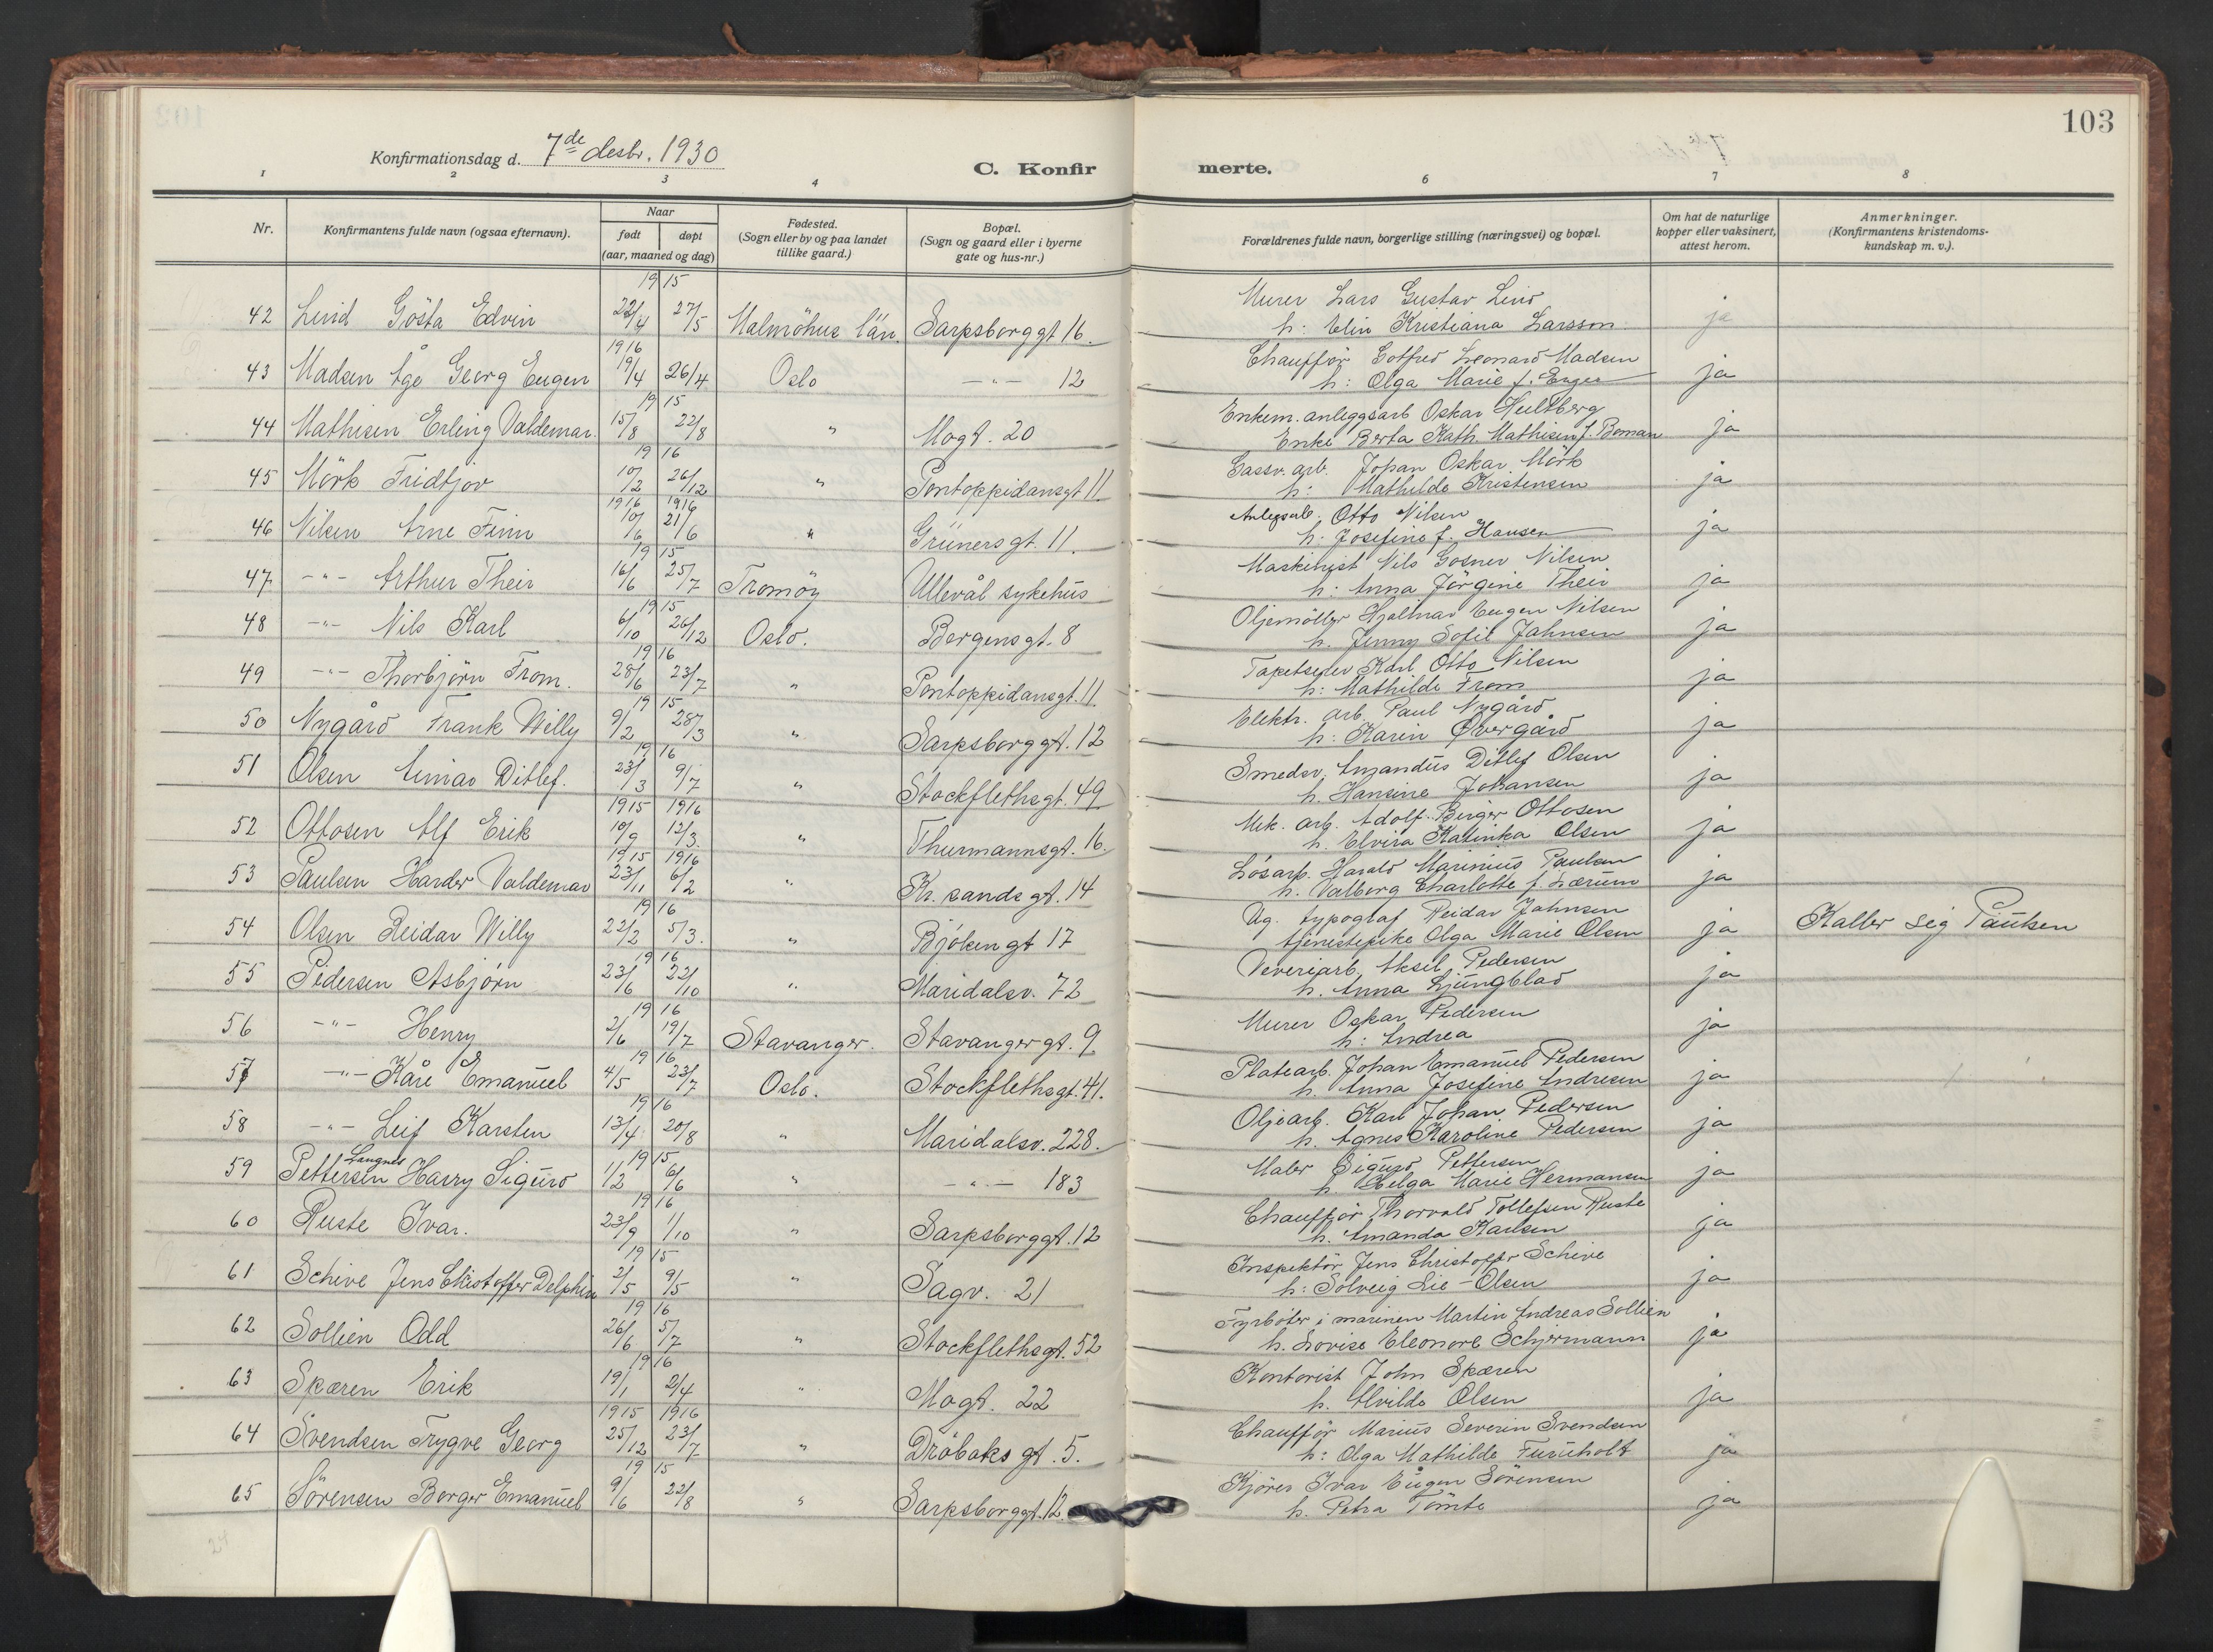 103
Konfirmationsdag d. 7de desbr. 1930
C. Konfirmerte.
1 2 3 4 6 7 8
Nr. Konfirmantens fulde navn (ogsaa efternavn). Naar født døpt (aar, maaned og dag) Fødested. (Sogn eller by og paa landet tillike gaard.) Bopæl. (Sogn og gaard eller i byerne gate og hus-nr.) Forældrenes fulde navn, borgerlige stilling (næringsvei) og bopæl. Om hat de naturlige kopper eller vaksinert, attest herom. Anmerkninger. (Konfirmantens kristendoms-kundskap m. v.).
1915
42 Lind Gösta Edvin 22/4 27/5 Malmöhus län. Sarpsborggt 16. Murer Lars Gustav Lind ja
h: Elin Kristiana Larsson.
1916
43 Madsen Åge Georg Eugen 19/4 26/4 Oslo -"- 12 Chaufför Gotfred Leonard Madsen ja
h: Olga Marie f. Enger
1915
44 Mathisen Erling Valdemar. 15/8 22/8 " Mogt. 20 Enkem. anleggsarb Oskar Hultberg ja
Enke Berta Kath. Mathisen f. Boman
1916
45 Mörk Fridtjov 10/2 26/12 " Pontoppidansgt 11. Gassv. arb. Johan Oskar Mörk ja
h: Mathilde Kristensen
1916 1916
46 Nilsen Arne Finn 10/6 21/6 " Grünersgt. 11. Anlegsarb. Otto Nilsen ja
h. Josefine f. Hansen
1915
47 -"- Arthur Their 16/6 25/7 Tromöy Ullevål sykehus Maskinist Nils Gosner Nilsen ja
h: Anna Jörgine Their
1915
48 -"- Nils Karl 6/10 26/12 Oslo. Bergensgt. 8 Oljemöller Hjalmar Eugen Nilsen ja
h. Jenny Sofie Johnsen
1916
49 -"- Thorbjörn From. 28/6 23/7 " Pontoppidansgt. 11. Tapetserer Karl Otto Nilsen ja
h: Mathilde From
1915
50 Nygård Frank Willy 9/2 28/3 " Sarpsborggt. 12 Elektr. arb. Paul Nygård ja
h: Karin Övergård
1916
51 Olsen Einar Ditlef. 23/3 9/7 " Stockflethsgt. 49 Smedsv. Amandus Ditlef Olsen ja
h. Hansine Johansen
1915 1916
52 Ottosen Alf Erik 10/9 12/3. " Thurmannsgt. 16. Mek. arb. Adolf Birger Ottosen ja
h. Elvira Katinka Olsen
1915 1916
53 Paulsen Harder Valdemar 23/11 6/2 " Kr. sands gt. 14 Lösarb. Harald Marinius Paulsen ja
h. Valborg Charlotte f. Lærum
1916
54 Olsen Reidar Willy 22/2 5/3. " Bjölsengt 17 Ug. typograf Reidar Johnsen ja Kaller sig Paulsen
tjenestepike Olga Marie Olsen
1916
55 Pedersen Asbjörn 23/6 22/10 " Maridalsv. 72 Veveriarb. Aksel Pedersen ja
h. Anna Ljungblad
1916
56 -"- Henry 2/6 19/7 Stavanger. Stavangergt. 9 Murer Oskar Pedersen ja
h: Andrea
1916
57 -"- Kåre Emanuel 4/5 23/7 Oslo. Stockflethsgt. 41. Platearb. Johan Emanuel Pedersen ja
h. Anna Josefine Andresen
1916
58 -"- Leif Karsten 13/4 20/8 " Maridalsv. 228. Oljearb. Karl Johan Pedersen ja
h. Agnes Karoline Pedersen
Langnes 1915
59 Pettersen Harry Sigurd 1/2 6/6 " -"- 183 Maler Sigurd Pettersen ja
h. Helga Marie Hermansen
1916
60 Ruste Ivar. 23/9 1/10 " Sarpsborggt. 12 Chauffjör Thorvald Tollefsen Ruste ja
h. Amanda Karlsen
1915
61 Schive Jens Christoffer Delphin 2/5 9/5 " Sagv. 21 Inspektör Jens Christoffer Schive ja
h: Solveig Lie-Olsen
1916
62 Sollien Odd 26/6 5/7 " Stockflethsgt. 52 Fyrböter i marinen Martin Andreas Sollien ja
h. Lovise Eleonore Schjermann
1916
63 Spæren Erik 19/1 2/4 " Mogt. 22 Kontorist John Spæren ja
h. Alvilde Olsen
1915 1916
64 Svendsen Trygve Georg 25/12 23/7 " Dröbaks gt. 5. Chaufför Marius Severin Svendsen ja
h: Olga Mathilde Furuholt
1915
65 Sörensen Borger Emanuel 9/6 22/8 " Sarpsborggt. 12. Kjörer Ivar Eugen Sörensen ja
h. Petra Tömte
24